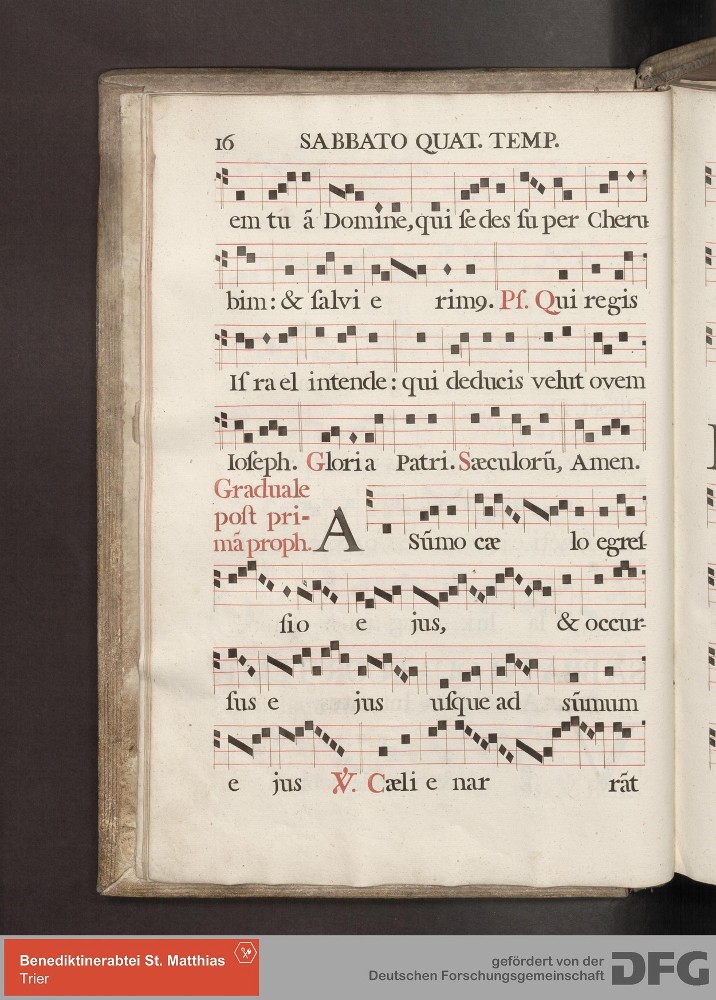 16 SABBATO QUAT. TEMP.
em tu ã Domine, qui ſedes ſuper Cheru-
bim: & ſalvi e rimꝰ. Pſ. Qui regis
Iſrael intende: qui deducis velut ovem
Ioſeph. Gloria Patri. Sæculorũ, Amen.
Graduale
poſt pri-
mã proph. A Sũmo cæ lo egreſ-
ſio e jus, & occur-
ſus e jus uſque ad sũmum
e jus ℣. Cæli e nar rãt
Benediktinerabtei St. Matthias
Trier
gefördert von der
Deutschen Forschungsgemeinschaft DFG